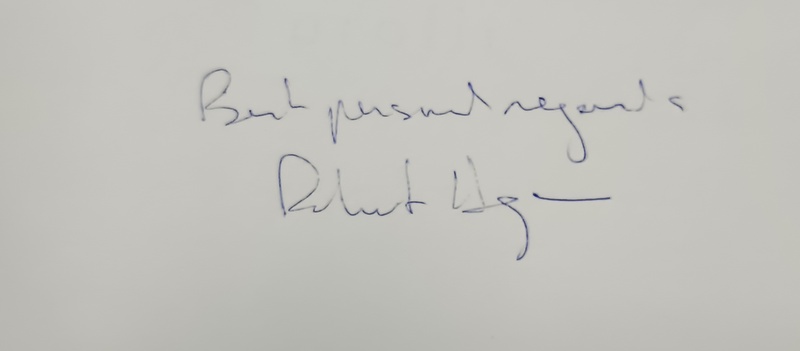 Best personal regards
Robert